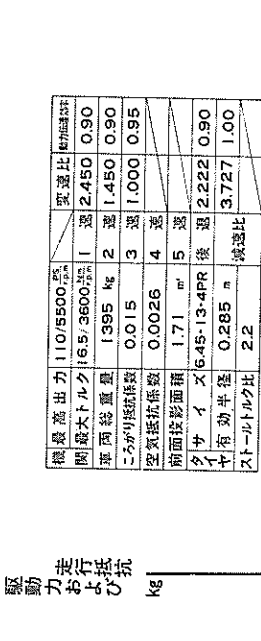 機関 最高出力 110/5500 PS/r.p.m 変速比 動力伝達効率
最大トルク 16.5/3600 kg-m/r.p.m 1速 2.450 0.90
車両総重量 1395 kg 2速 1.450 0.90
ころがり抵抗係数 0.015 3速 1.000 0.95
空気抵抗係数 0.0026 4速
前面投影面積 1.71 m² 5速
タイヤ サイズ 6.45-13-4PR 後退 2.222 0.90
有効半径 0.285 m 減速比 3.727 1.00
ストールトルク比 2.2
駆動力および走行抵抗
kg